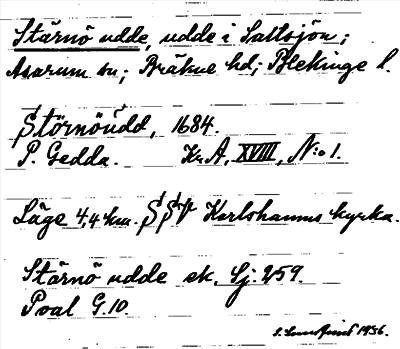 Stärnö udde, udde i Saltsjön;
Asarum sn; Bräkne hd; Blekinge l.
Störnöudd, 1684.
P. Gedda. Kr.A, XVIII, N:o 1.
Läge 4,4 km. SSV Karlshamns kyrka.
Stärnö udde ek. Sj. 259.
Poal G.10.
1936.